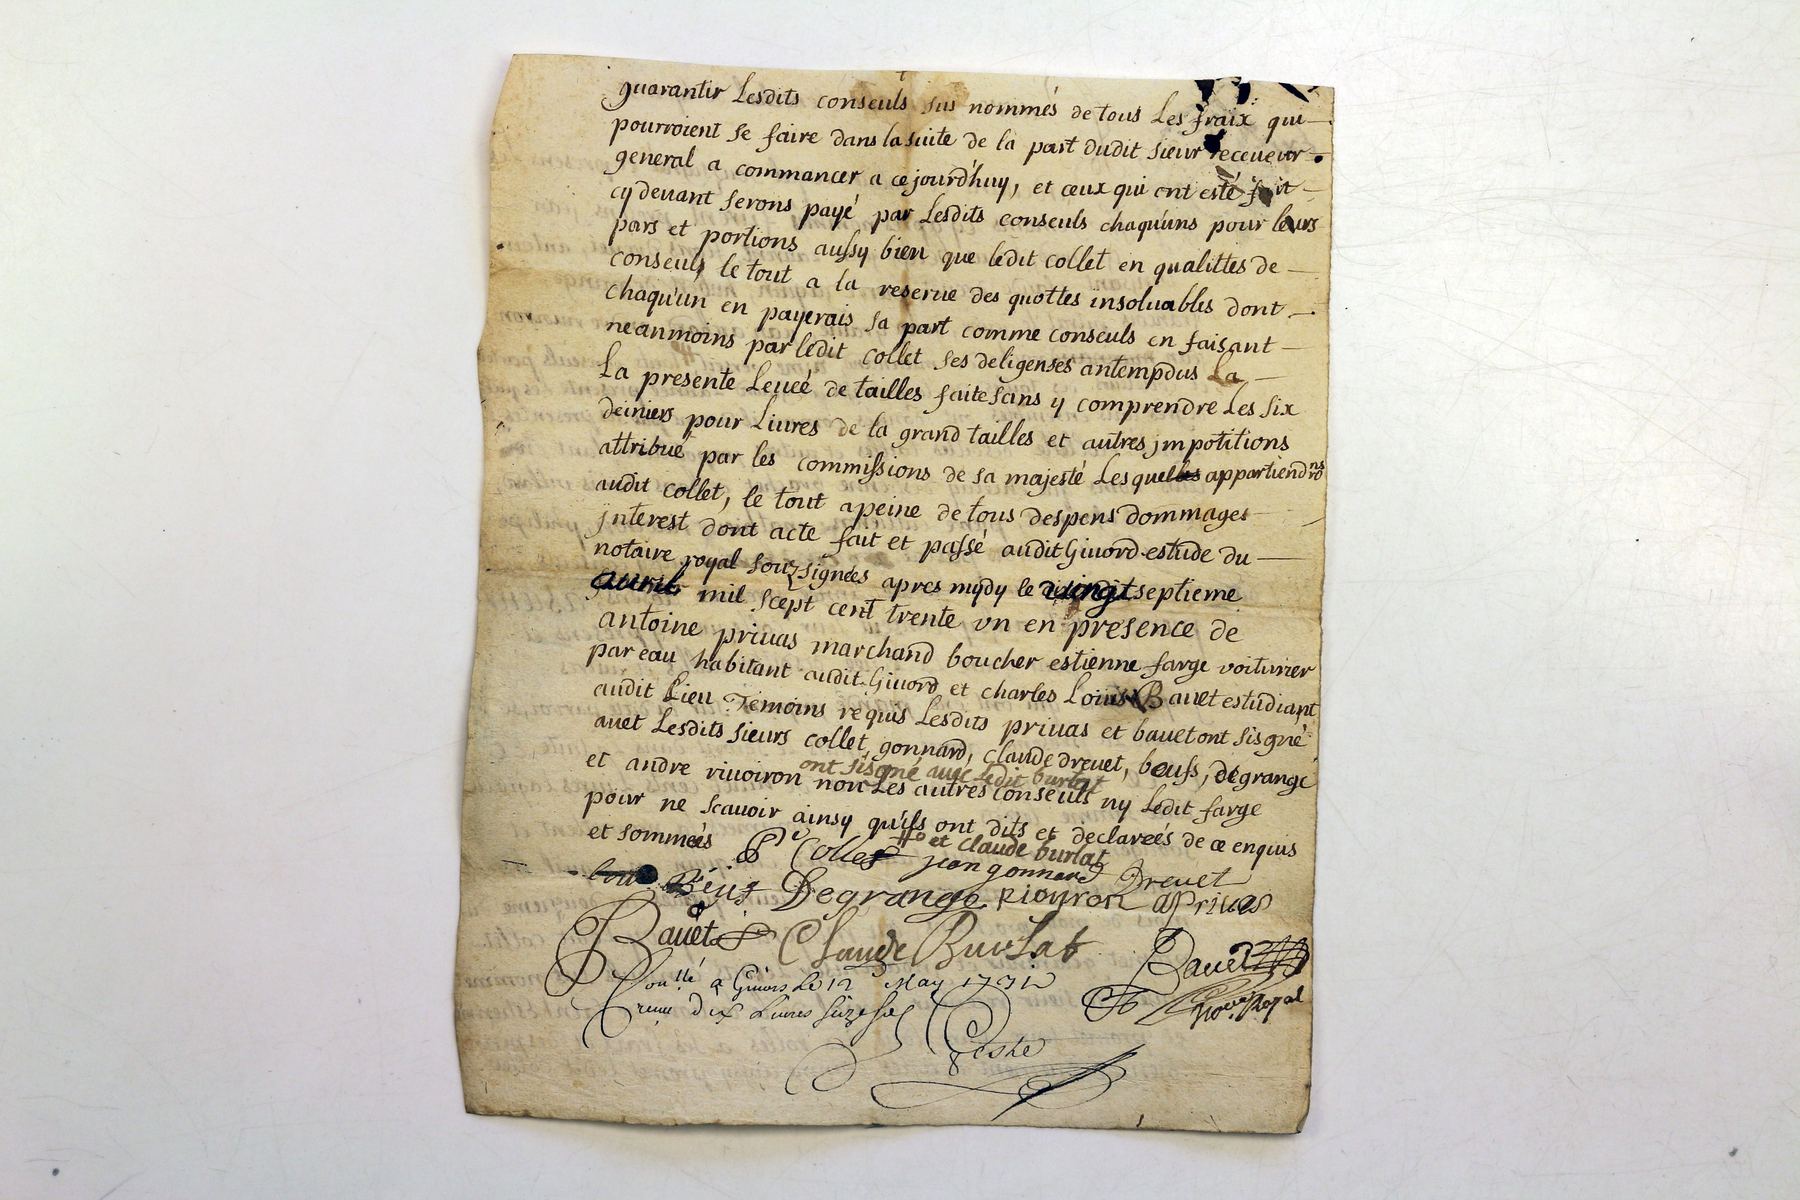 guarantir Lesdits conseuls sus nommés de tous Les fraix qui
pourroient se faire dans la suite de la part dudit sieur receueur
general a commancer a ce jourd'huy, et ceux qui ont esté fait
cy deuant serons payé par Lesdits conseuls chaquuns pour leurs
pars et portions aussy bien que ledit collet en qualittes de
conseuls le tout a la reserue des quottes insoluables dont
chaqu'un en payerais sa part comme conseuls en faisant
neanmoins par ledit collet ses deligenses antempdus La
La presente Leueé de tailles faite sans y comprendre Les six
deiniers pour Liures de la grand tailles et autres jmpotitions
attribué par les commissions de sa majesté Lesquelles appartiendrons
audit collet, le tout apeine de tous despens dommages
jnterest dont acte fait et passé audit Giuord estude du
notaire royal souzsignées apres mydy le vingt septieme
auril mil scept cent trente un en presence de
antoine priuas marchand boucher estienne farge voiturier
par eau habitant audit Giuord et charles Louis Bauet estudiant
audit Lieu Témoins requis Lesdits priuas et bauet ont sisgné
auet Lesdits sieurs collet, gonnard, claude dreuet, beufs, degrange
ont sisgné auec ledit burlat
et andre riuoiron non Les autres conseuls ny ledit farge
pour ne scauoir ainsy qu'ils ont dits et declareés de ce enquis
et sommeés
et claude burlat
Collet jean gonnard Dreuet
Beuf Degrange Rioyron aPriuas
Bauet Claude Burlat
Bauet
Royal
Con.llé a Giuors Le 12 May 1731
receu dix Liures seize sols
Coste